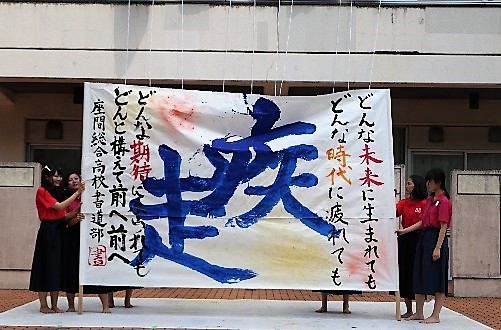 どんな未来に生まれても
どんな時代に疲れても
疾走
どんな期待に れても
どんと構えて前へ前へ
座間総合高校書道部
書